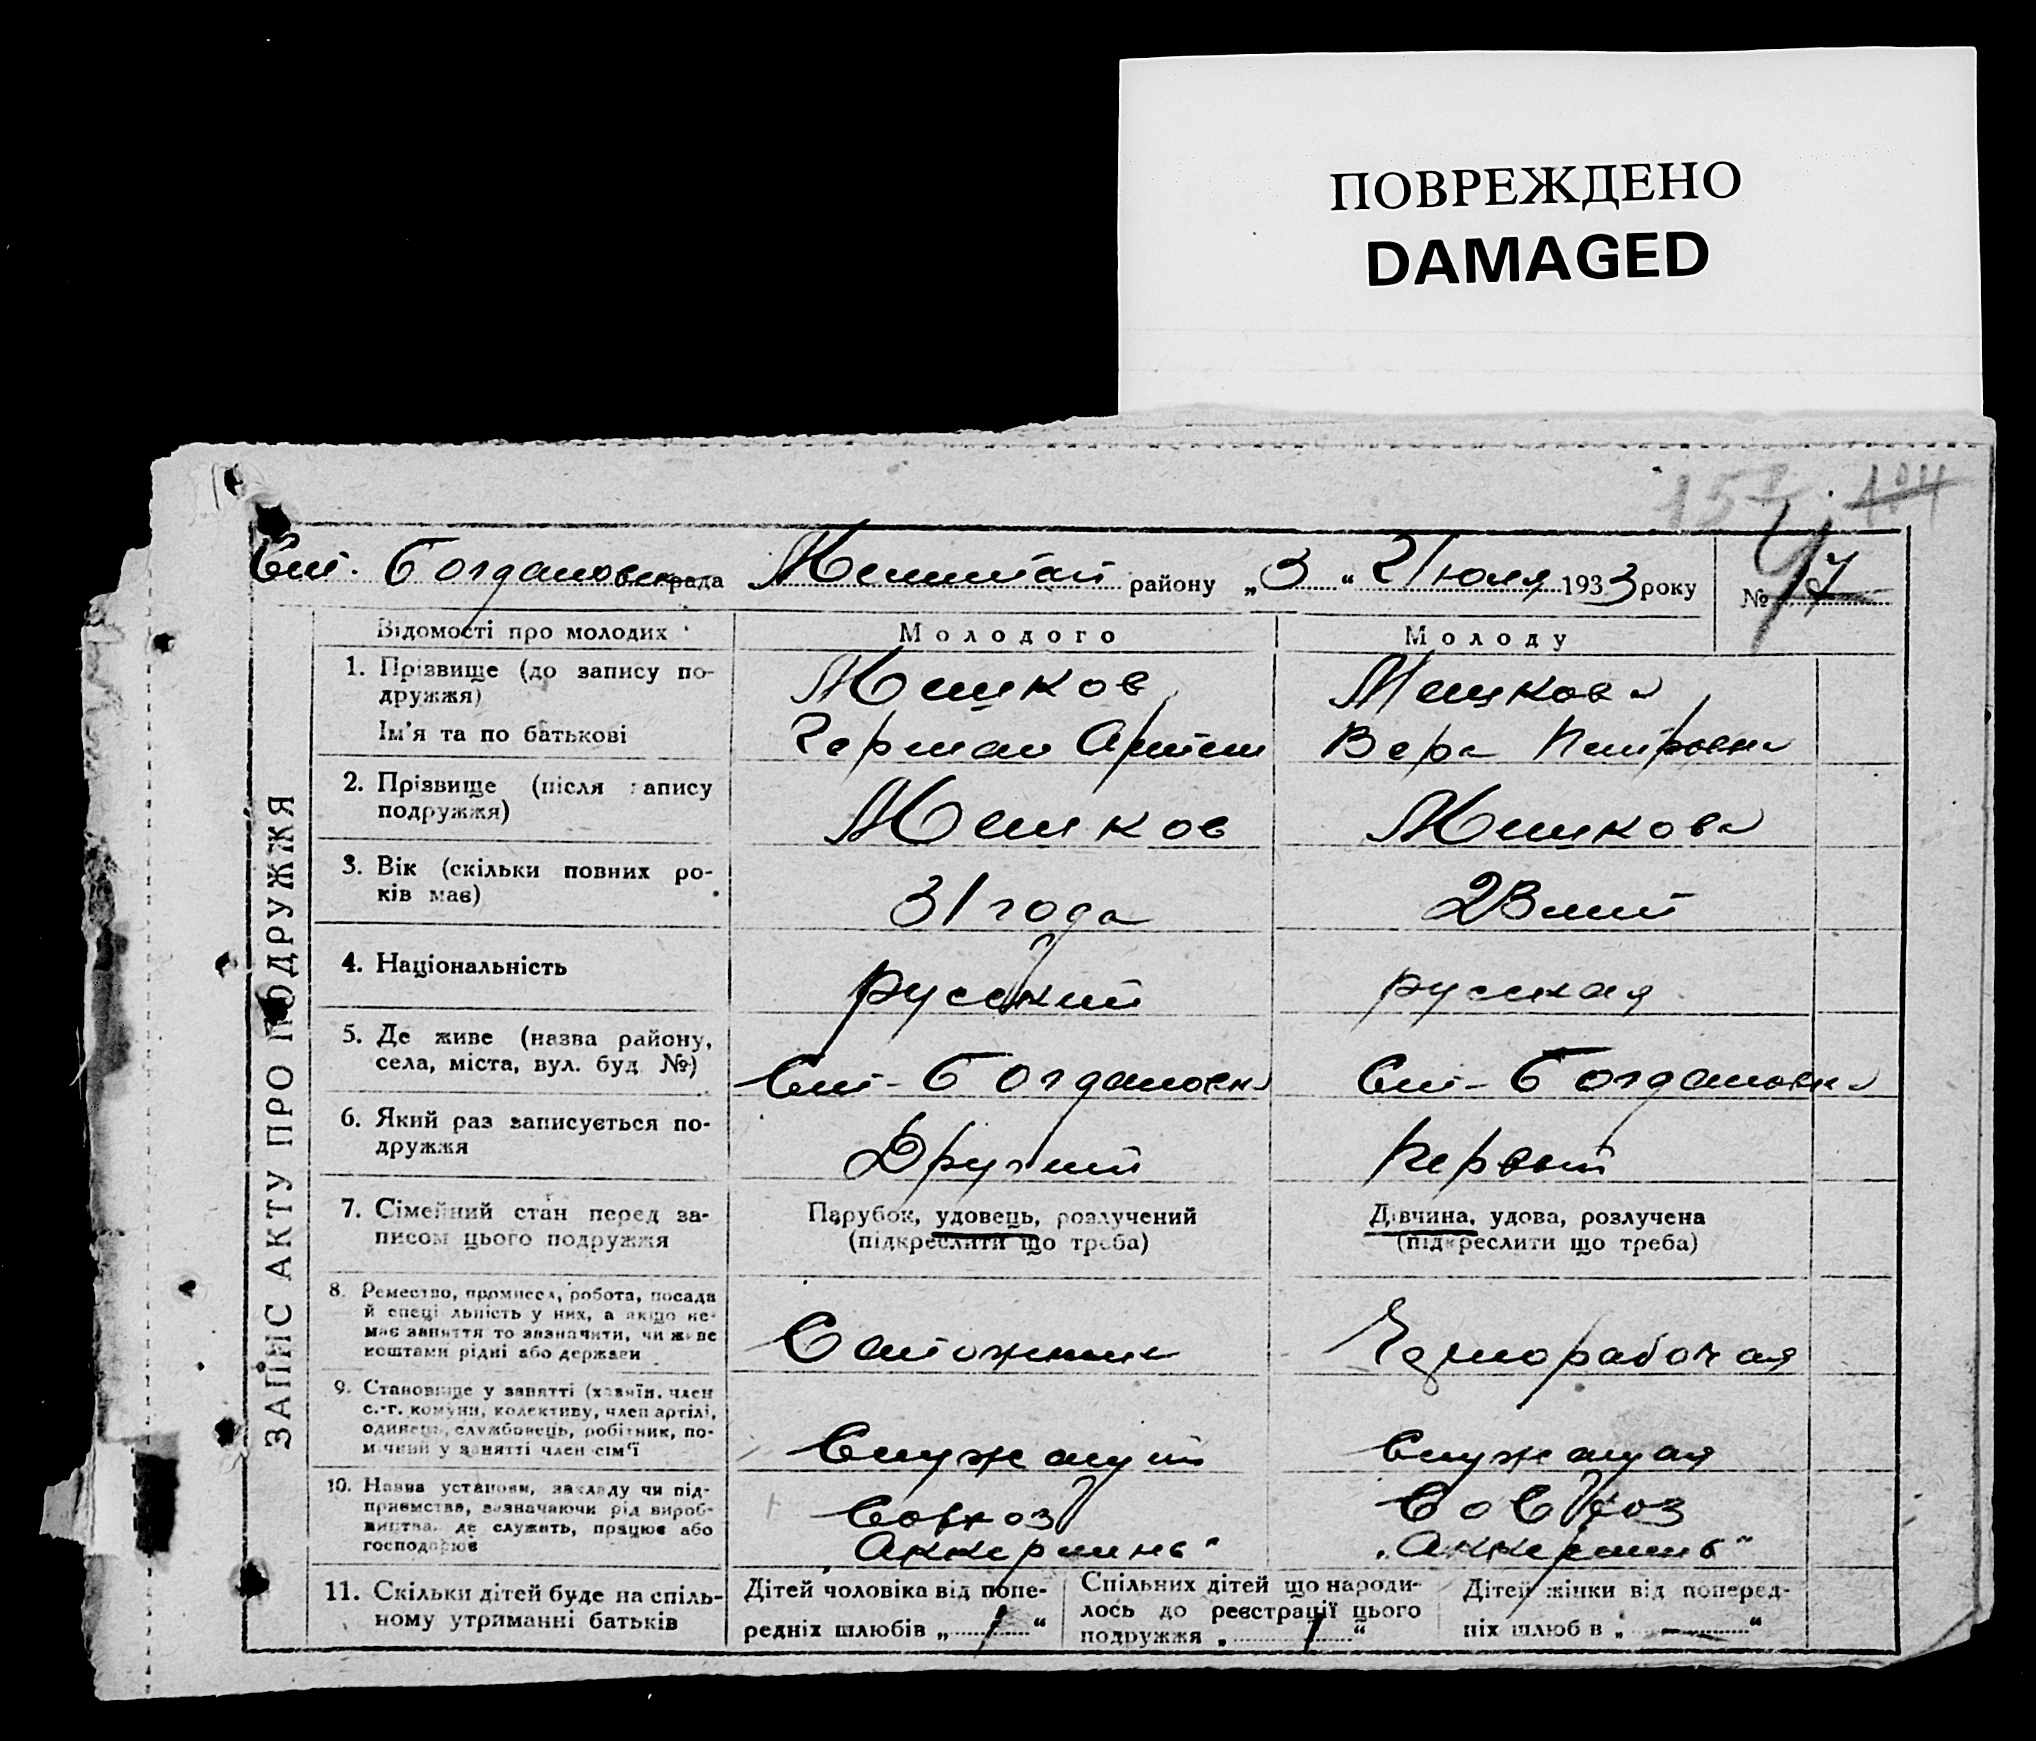 ПОВРЕЖДЕНО
DAMAGED
157 104
Ст. Богдановск рада Мелитоп району „3“ 2/июля 1933 року № 17
ЗАПИС АКТУ ПРО ПОДРУЖЖЯ
Відомості про молодих Молодого Молоду
1. Прізвище (до запису по-
дружжя) Мешков Мешкова
Ім'я та по батькові Герман Артем Вера Петровна
2. Прізвище (після запису
подружжя) Мешков Мешкова
3. Вік (скільки повних ро-
ків має) 31 года 23 лет
4. Національність русский русская
5. Де живе (назва району,
села, міста, вул. буд №) Ст-Богдановка Ст-Богдановка
6. Який раз записується по-
дружжя Другий Первый
7. Сімейний стан перед за-
писом цього подружжя
Парубок, удовець, розлучений
(підкреслити що треба)
Дівчина, удова, розлучена
(підкреслити що треба)
8. Ремество, промисел, робота, посада
й спеціальність у них, а якщо не-
має заняття то зазначити, чи живе
коштами рідні або держави
Сапожник рабочая
9. Становище у занятті (хазяїн, член
с.-г. комуни, колективу, член артілі,
одинець, службовець, робітник, по-
мічний у занятті член сім'ї
Служащий Служащая
10. Назва установи, закладу чи під-
приємства, зазначаючи рід вироб-
ництва, де служить, працює або
господарює
Совхоз Совхоз
„Аккермень“ „Аккермень“
11. Скільки дітей буде на спіль-
ному утриманні батьків
Дітей чоловіка від попе-
редніх шлюбів „ 1 “
Спільних дітей що народи-
лось до реєстрації цього
подружжя „ 1 “
Дітей жінки від поперед-
ніх шлюбів „ — “